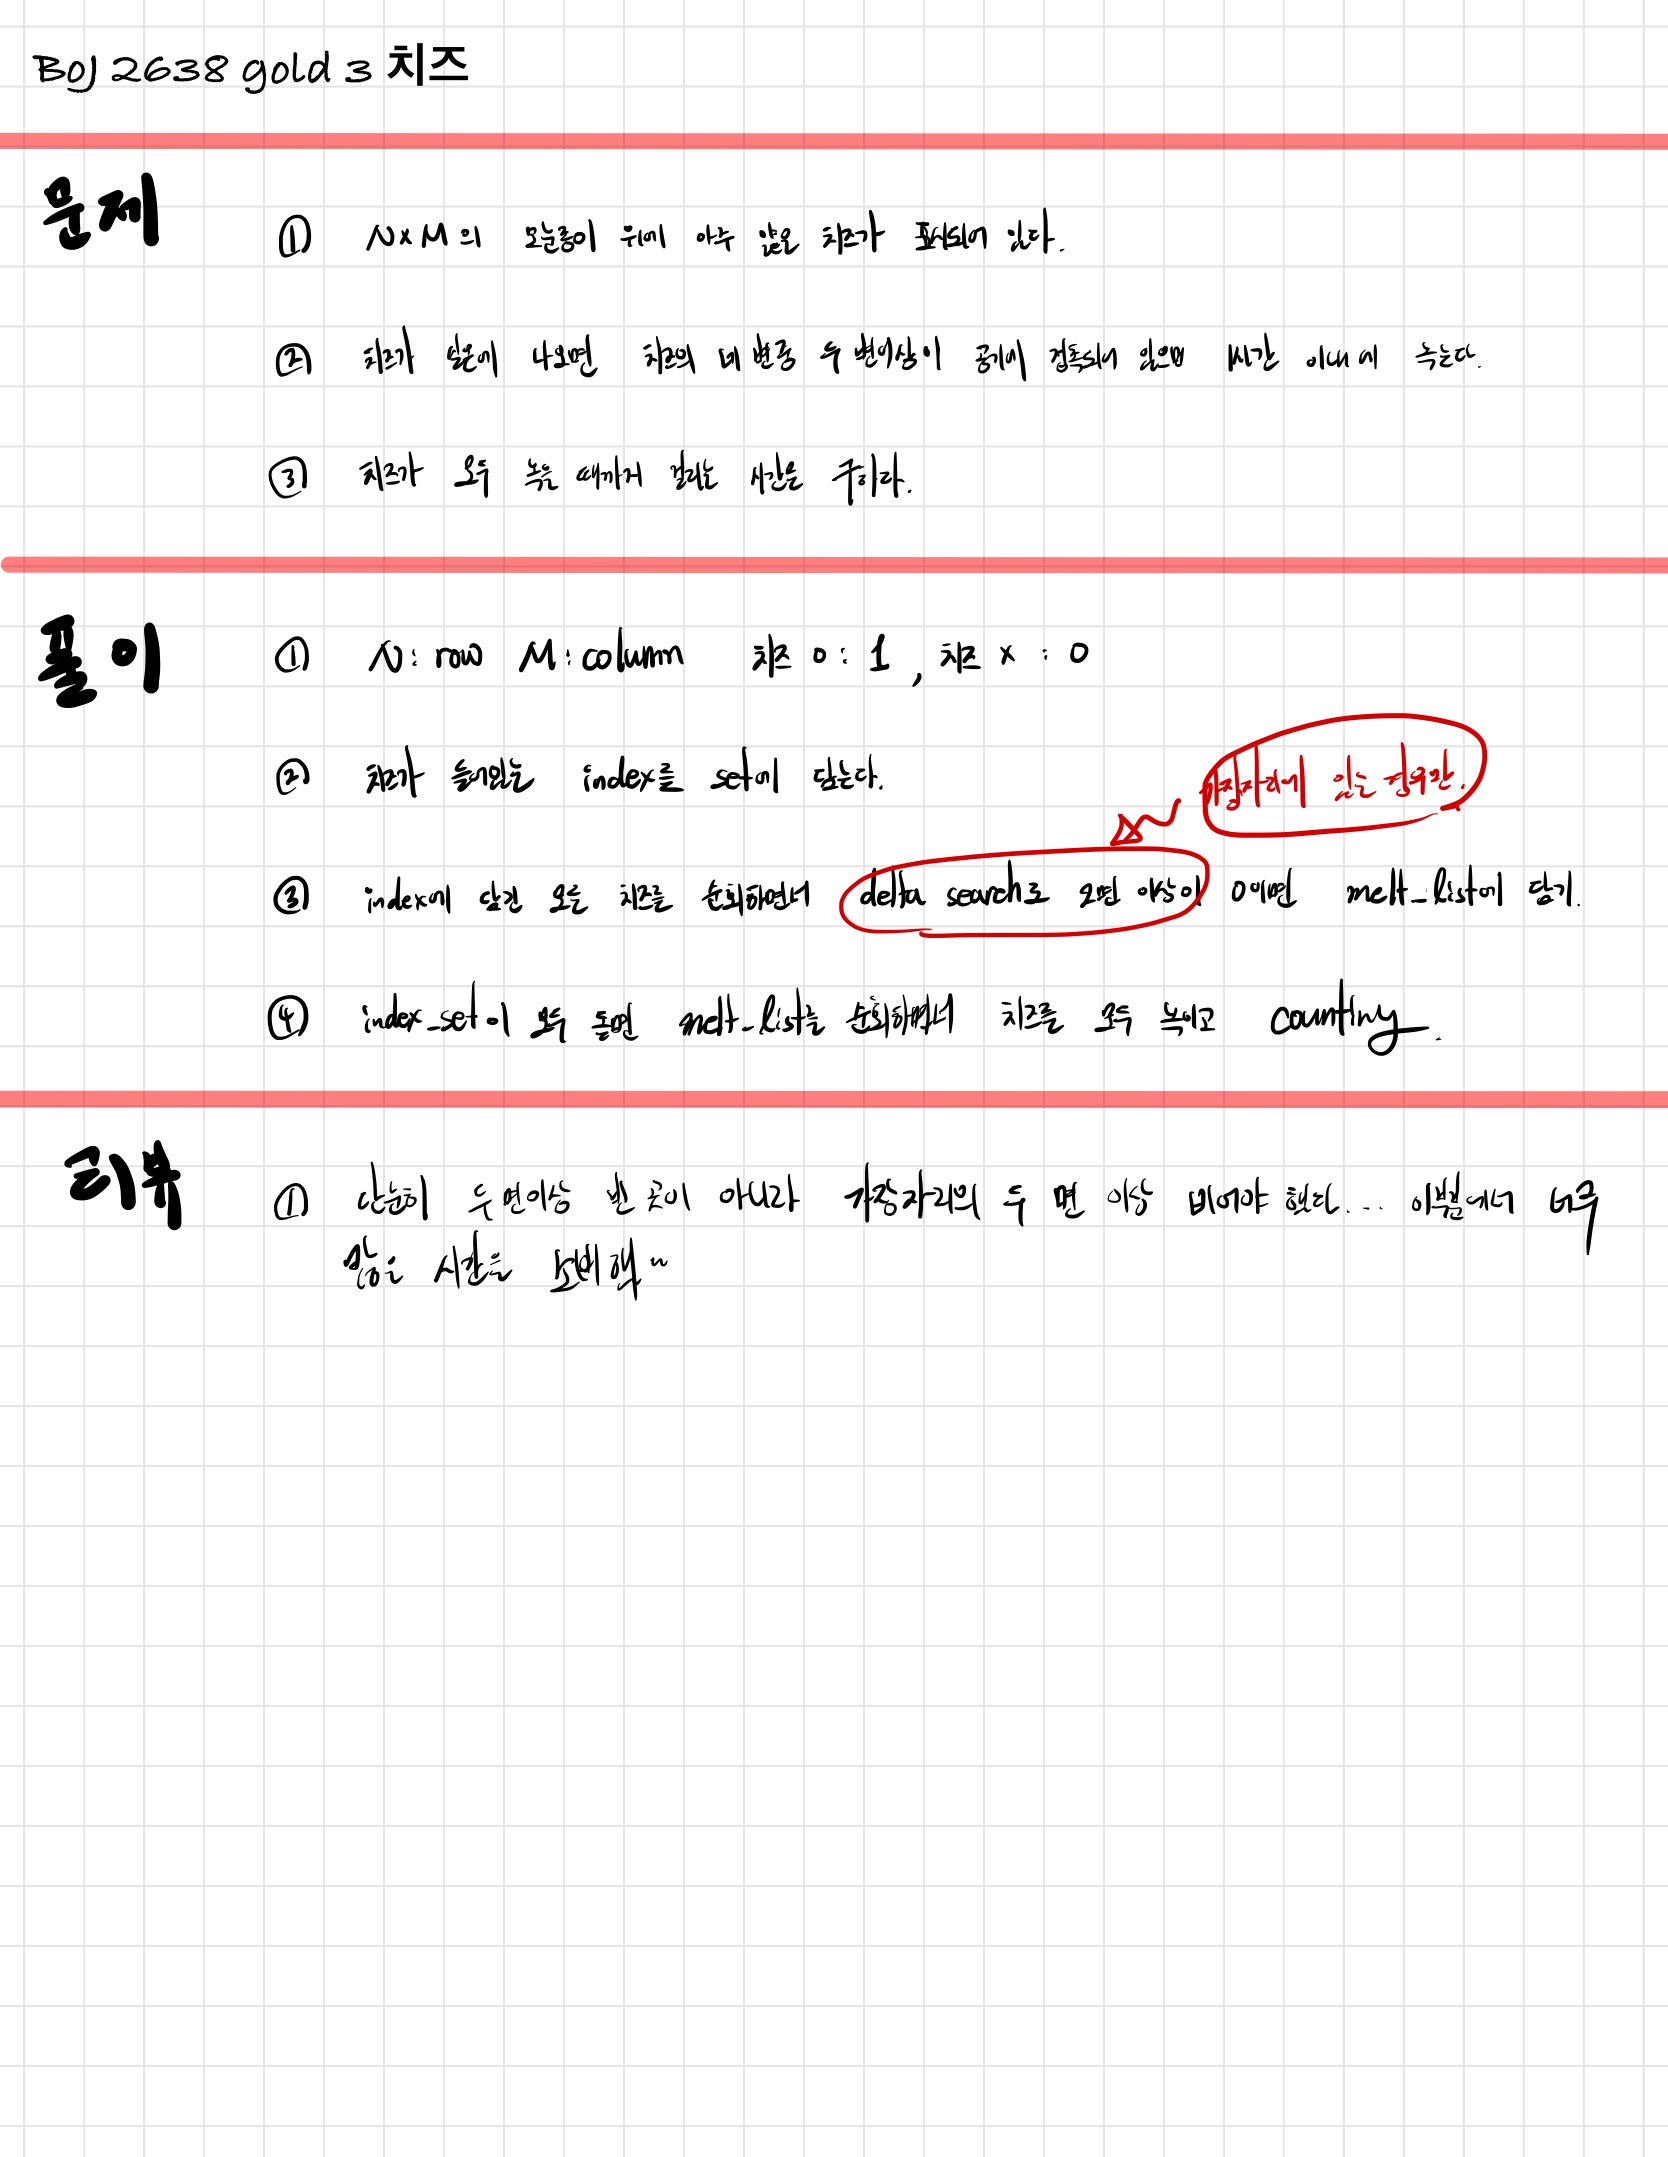 BOJ 2638 gold 3 치즈
문제
① N×M의 모눈종이 위에 아주 얇은 치즈가 표시되어 있다.
② 치즈가 실온에 나오면 치즈의 네 변중 두 변이상이 공기에 접촉되어 있으면 1시간 이내에 녹는다.
③ 치즈가 모두 녹을 때까지 걸리는 시간을 구하라.
풀이
① N: row M: column 치즈 o : 1, 치즈 x : 0
② 치즈가 들어있는 index를 set에 담는다.
가장자리에 있는 경우만.
③ index에 담긴 모든 치즈를 순회하면서 delta search로 2면 이상이 0이면 melt_list에 담기.
④ index_set이 모두 돌면 melt_list를 순회하면서 치즈를 모두 녹이고 counting.
리뷰
① 단순히 두 면이상 빈 곳이 아니라 가장자리의 두 면 이상 비어야 했다... 이부분에서 너무
많은 시간을 소비함